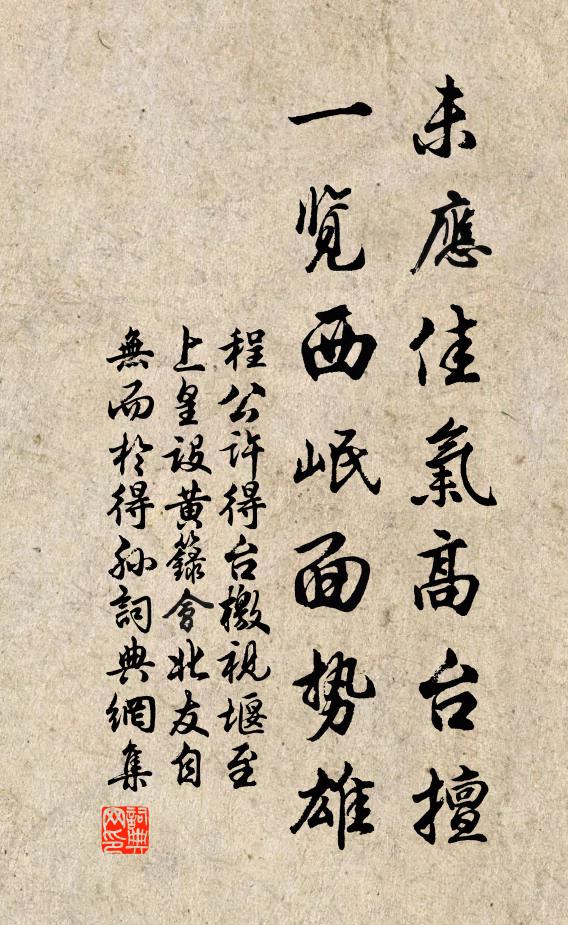 未應佳氣高台擅
一覽西岷面势雄
程公許得台檄視堰至
上皇設黃籙會北友自
無而於得孙詞典網集
詞典網印